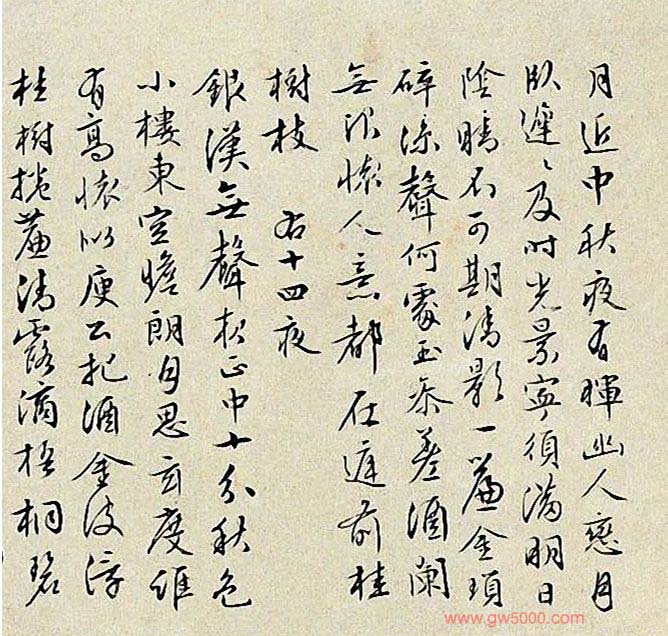 月近中秋夜有暉幽人戀月
臥遲〻及时光景寧須滿明日
陰晴不可期清影一簾金瑣
碎涼聲何處玉參差酒闌
無限懷人意都在庭前桂
樹枝 右十四夜
銀漢無聲夜正中十分秋色
小樓東空瞻朗月思玄度誰
有高懷似庾公把酒金波浮
桂樹捲簾清露滴梧桐碧
www.gw5000.com